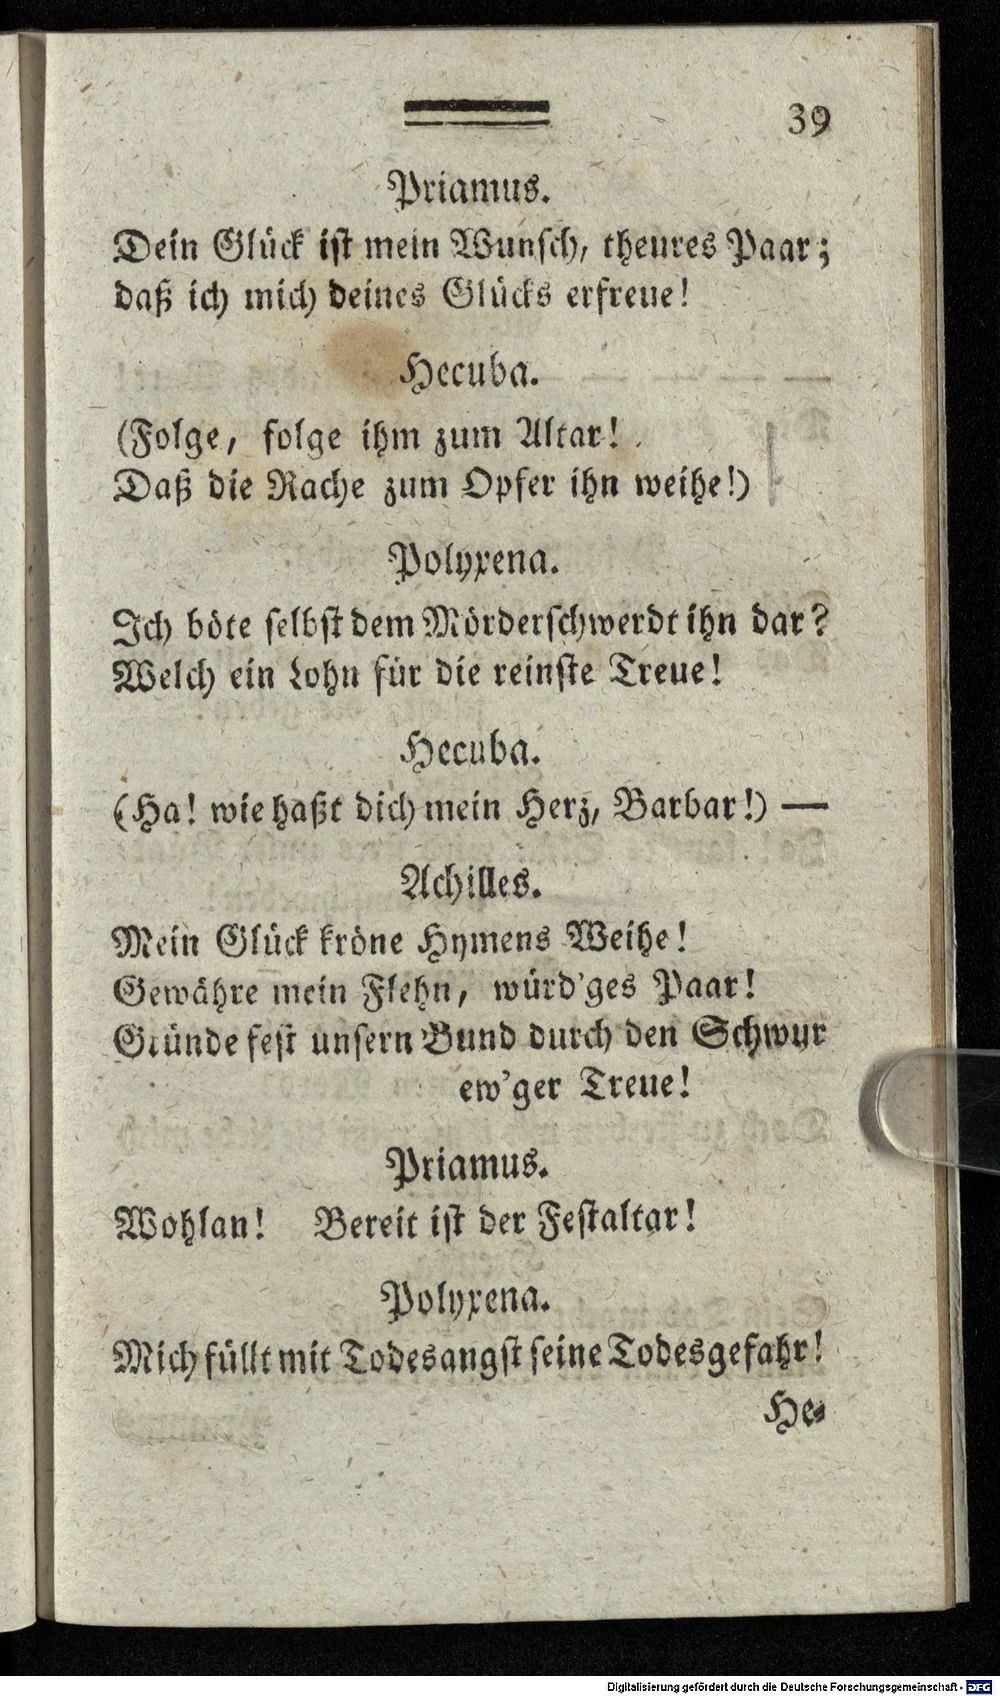 39
Priamus.
Dein Glück ist mein Wunsch, theures Paar;
daß ich mich deines Glücks erfreue!
Hecuba.
(Folge, folge ihm zum Altar!
Daß die Rache zum Opfer ihn weihe!)
Polyxena.
Ich böte selbst dem Mörderschwerdt ihn dar?
Welch ein Lohn für die reinste Treue!
Hecuba.
(Ha! wie haßt dich mein Herz, Barbar!) —
Achilles.
Mein Glück kröne Hymens Weihe!
Gewähre mein Flehn, würd'ges Paar!
Gründe fest unsern Bund durch den Schwur
ew'ger Treue!
Priamus.
Wohlan! Bereit ist der Festaltar!
Polyxena.
Mich füllt mit Todesangst seine Todesgefahr!
He-
Digitalisierung gefördert durch die Deutsche Forschungsgemeinschaft - DFG